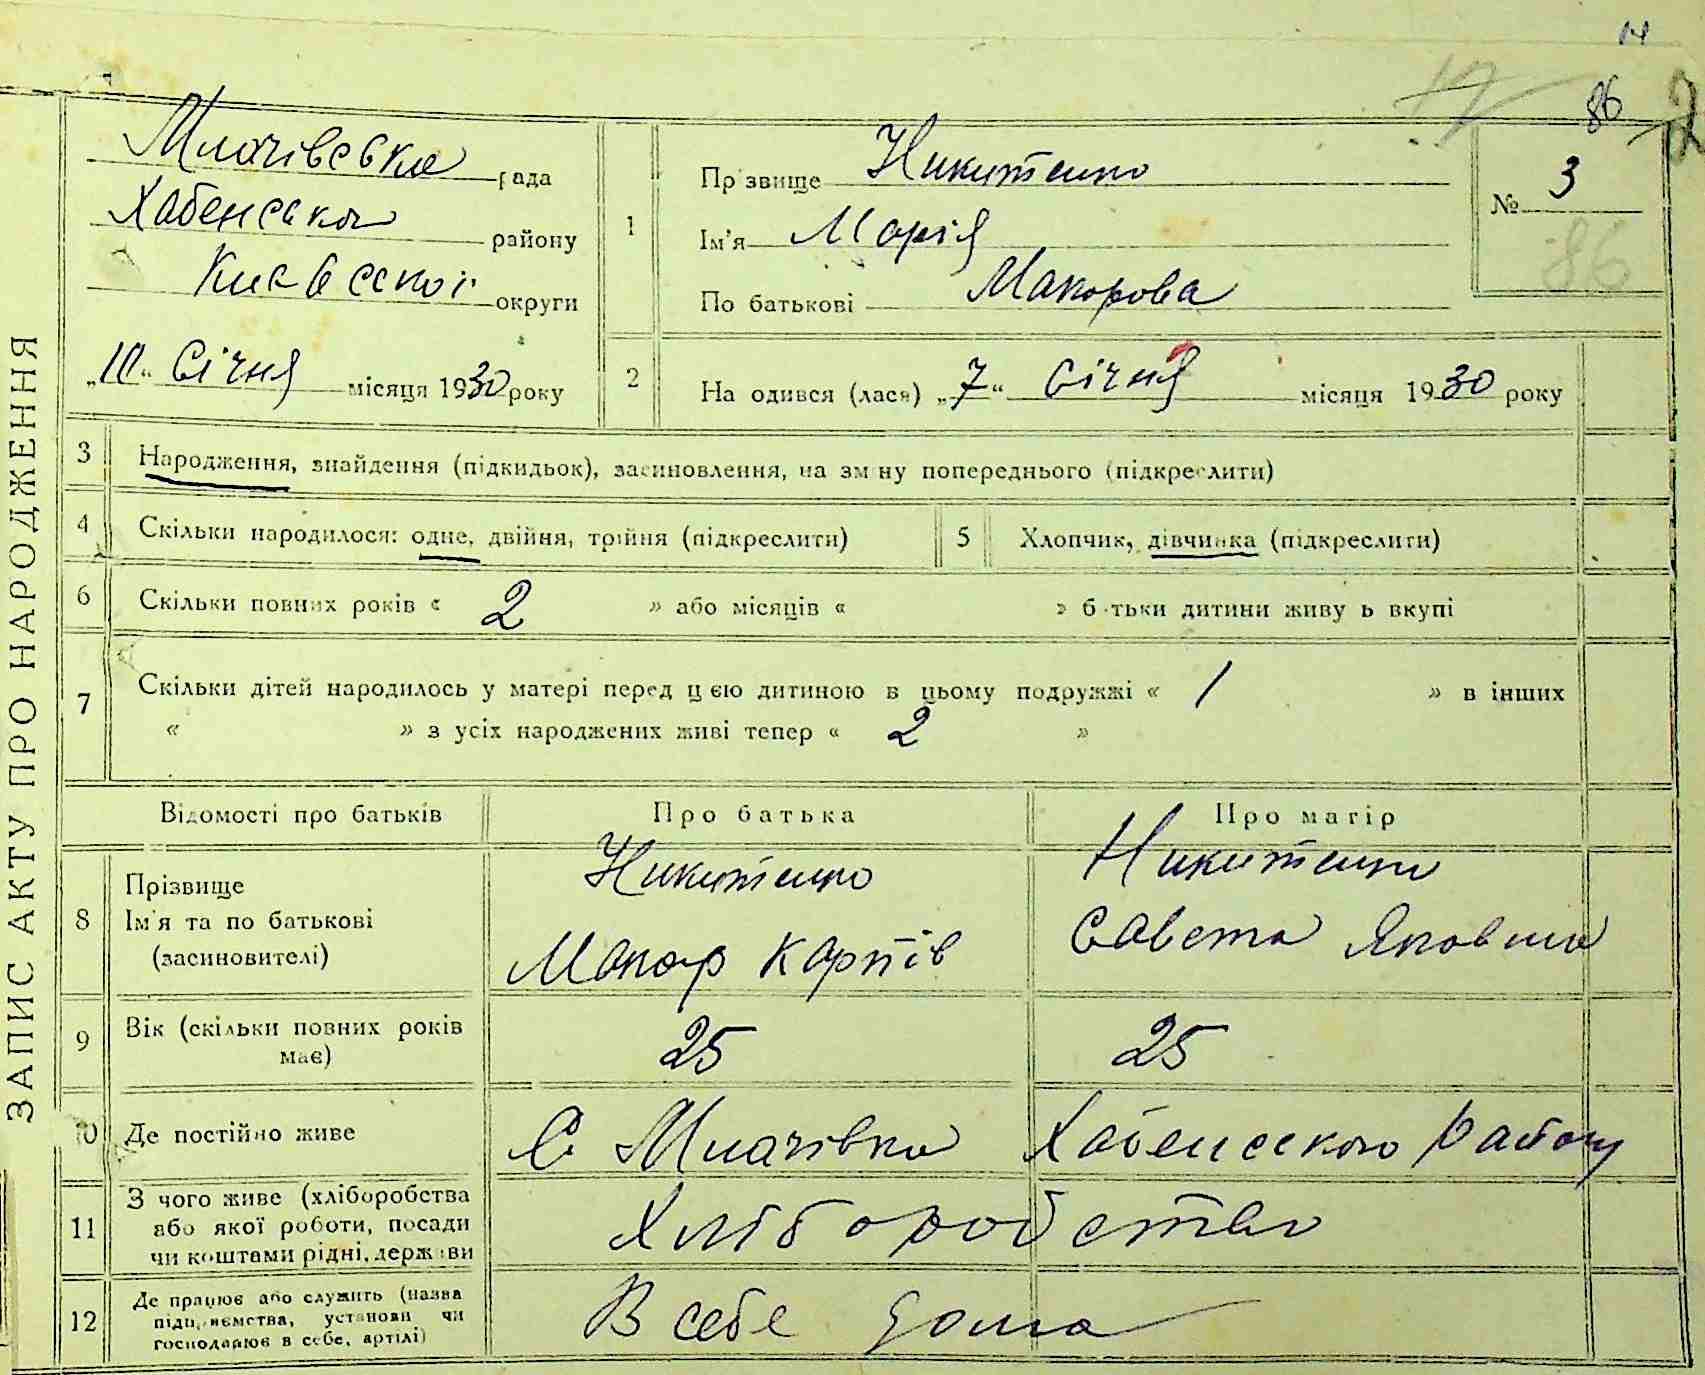 14
86
ЗАПИС АКТУ ПРО НАРОДЖЕННЯ
Млачівська рада
Хабенського району
Київської округи
„10“ Січня місяця 1930 року
1
Прізвище Никитенко
Ім'я Марія
По батькові Макарова
№ 3
86
2
Народився (лася) „7“ Січня місяця 1930 року
3 Народження, знайдення (підкидьок), засиновлення, на зміну попереднього (підкреслити)
4 Скільки народилося: одне, двійня, трійня (підкреслити)
5 Хлопчик, дівчинка (підкреслити)
6 Скільки повних років « 2 » або місяців « » батьки дитини живуть вкупі
7 Скільки дітей народилось у матері перед цією дитиною в цьому подружжі « 1 » в інших
« » з усіх народжених живі тепер « 2 »
Відомості про батьків Про батька Про матір
8
Прізвище
Ім'я та по батькові
(засиновителі)
Никитенко
Макар Карпів
Никитенко
Савета Яковна
9
Вік (скільки повних років
має)
25 25
10 Де постійно живе С Млачівка Хабенського Району
11
З чого живе (хліборобства
або якої роботи, посади
чи коштами рідні, держави
Хліборобство
12
Де працює або служить (назва
підприємства, установи чи
господарює в себе, артілі)
В себе дома